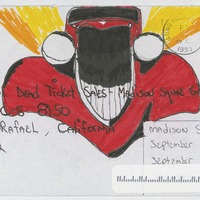 Dead Ticket Sales - Madison Square G
8150
Rafael, California
Madison S
September
September